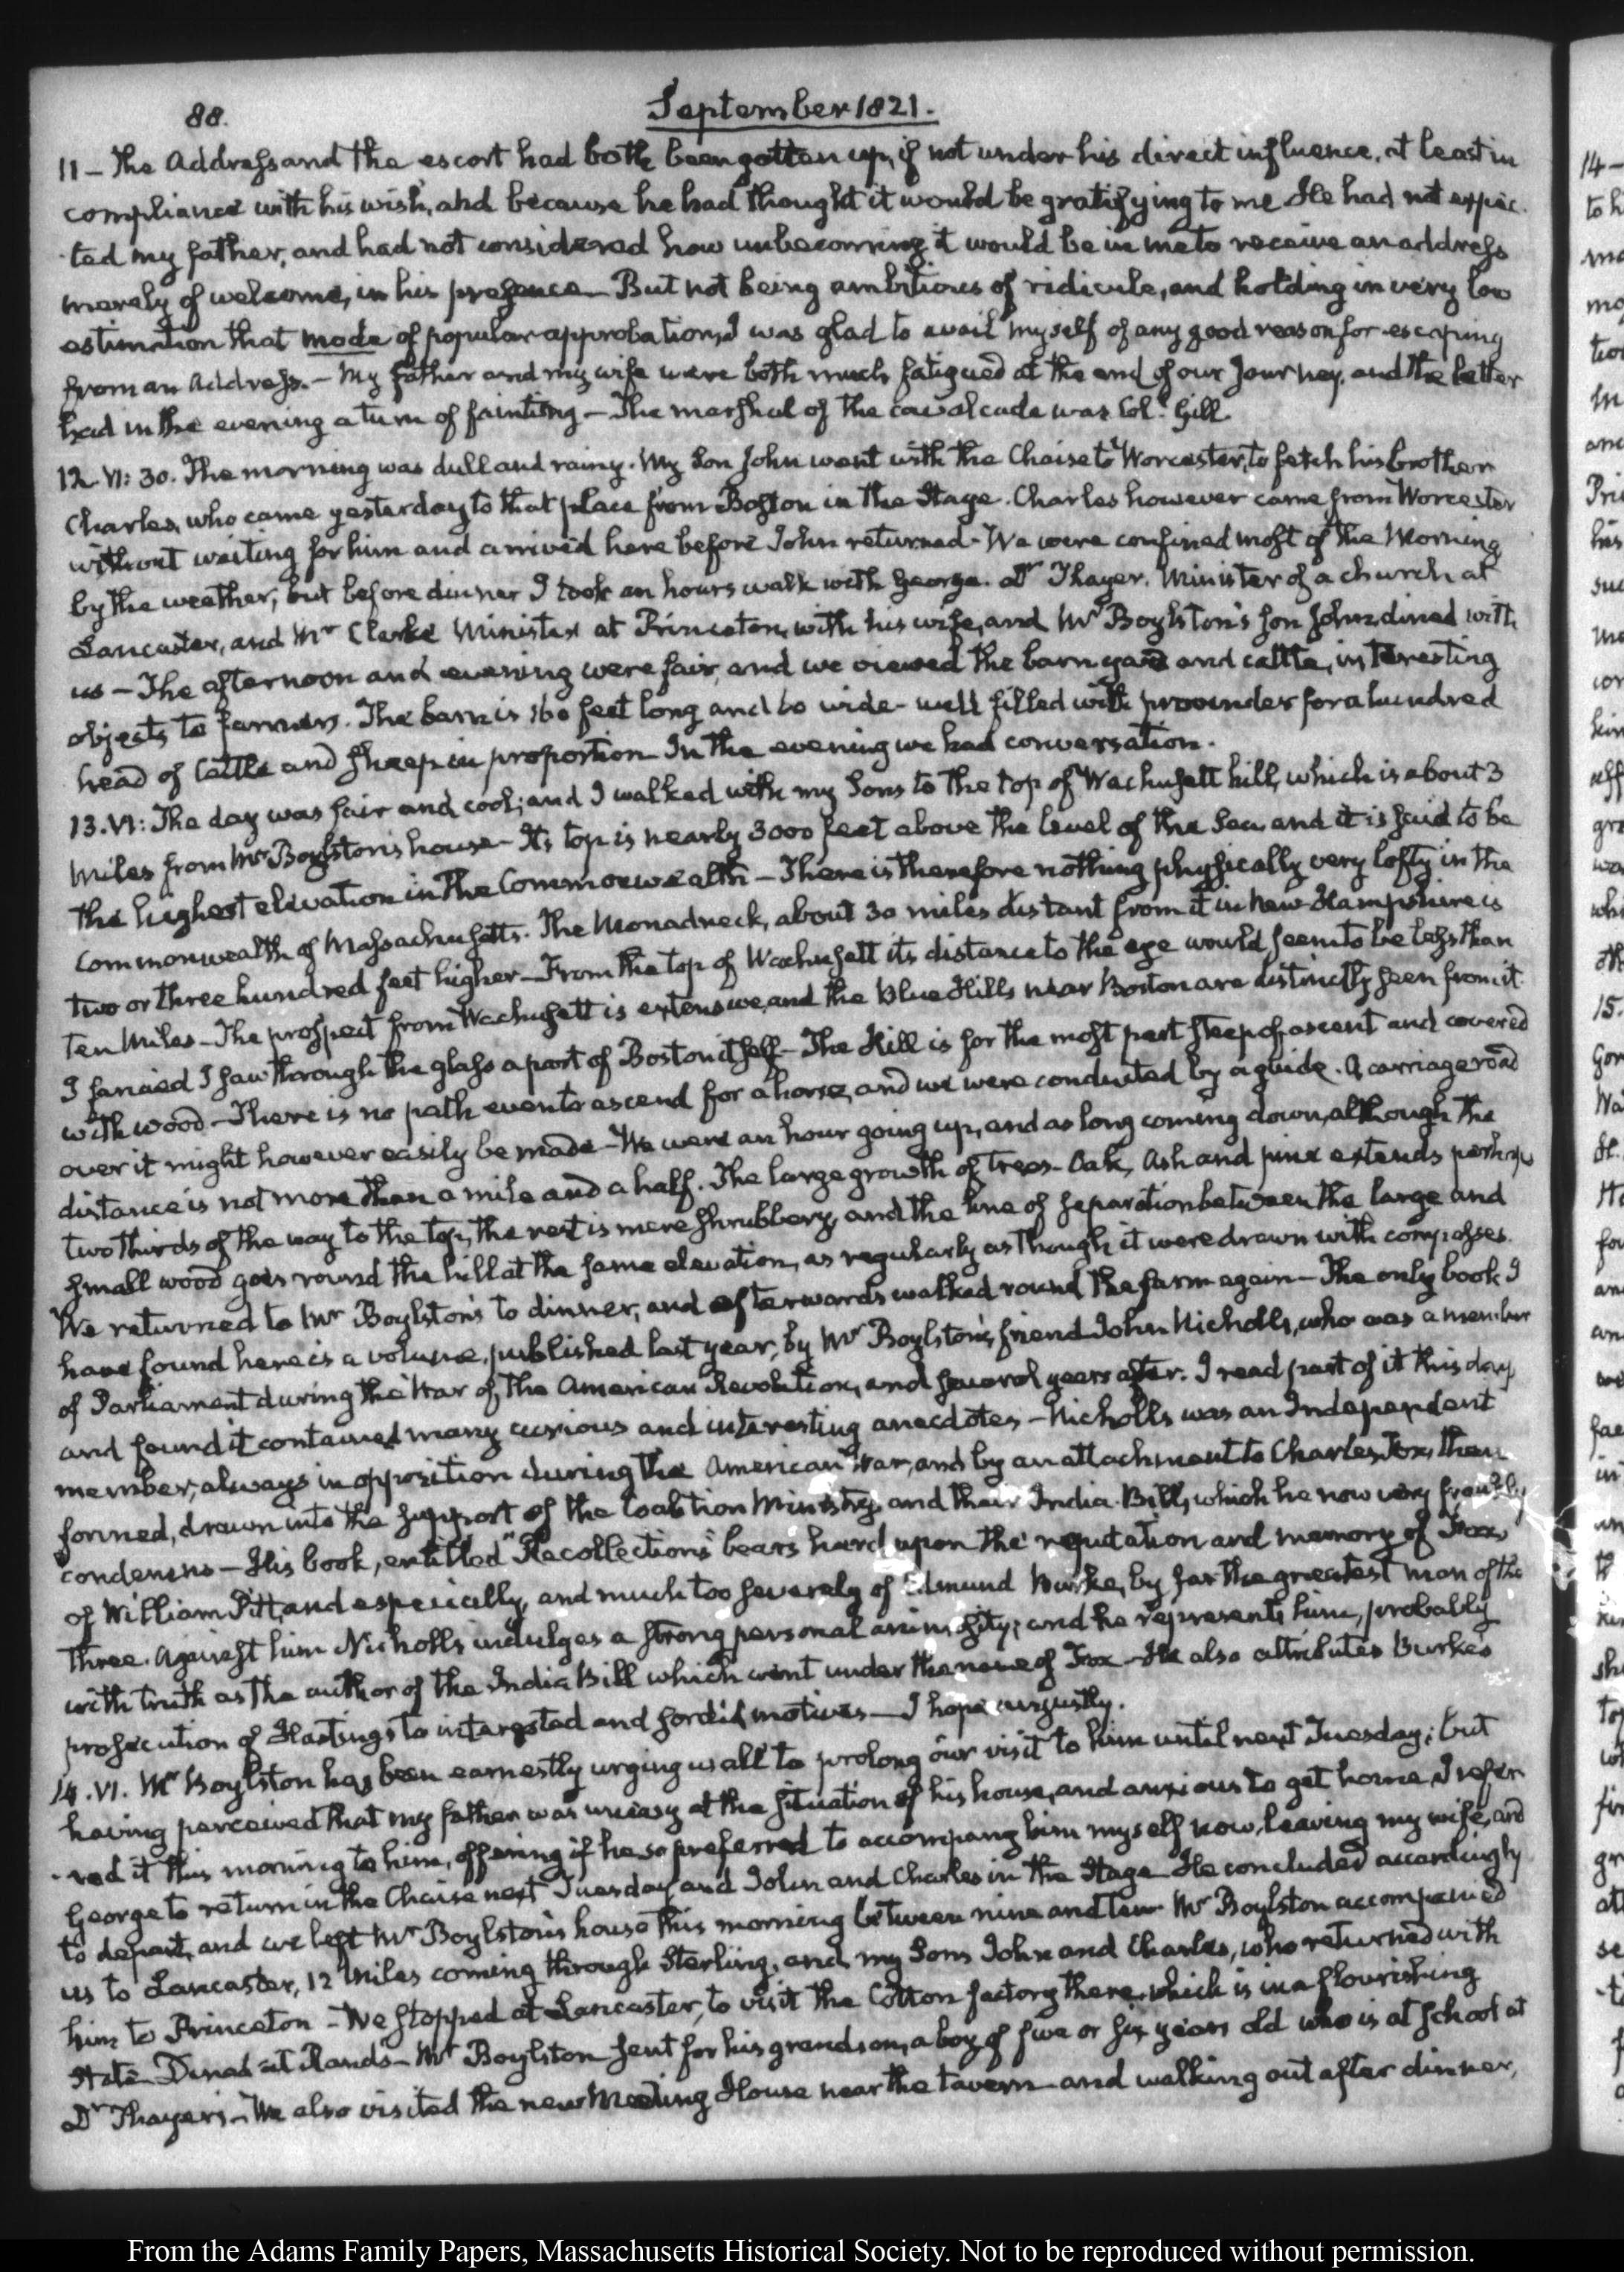 88.
September 1821.
11 — The Address and the escort had both been gotten up, if not under his direct influence, at least in
compliance with his wish, and because he had thought it would be gratifying to me He had not expec-
-ted my father, and had not considered how unbecoming it would be in me to receive an address
merely of welcome, in his presence — But not being ambitious of ridicule, and holding in very low
estimation that mode of popular approbation, I was glad to avail myself of any good reason for escaping
from an Address. — My father and my wife were both much fatigued at the end of our Journey, and the latter
had in the evening a turn of fainting — The marshal of the cavalcade was Col.l Gill.
12. VI: 30. The morning was dull and rainy. My Son John went with the Chaise to Worcester, to fetch his brother
Charles, who came yesterday to that place from Boston in the Stage. Charles however came from Worcester
without waiting for him and arrived here before John returned — We were confined most of the Morning
by the weather, but before dinner I took an hours walk with George. Dr Thayer, Minister of a church at
Lancaster, and Mr Clarke Minister at Princeton, with his wife, and Mr Boylston's son John, dined with
us — The afternoon and evening were fair, and we viewed the barn yard and cattle, interesting
objects to farmers. The barn is 160 feet long and 60 wide — well filled with provender for a hundred
head of Cattle and sheep in proportion — In the evening we had conversation.
13. VI: The day was fair and cool; and I walked with my Sons to the top of Wachusett hill, which is about 3
Miles from Mr Boylston's house — Its top is nearly 3000 feet above the level of the Sea, and it is said to be
the highest elevation in the Commonwealth — There is therefore nothing physically very lofty in the
Commonwealth of Massachusetts. The Monadneck, about 30 miles distant from it in New-Hampshire is
two or three hundred feet higher — From the top of Wachusett its distance to the eye would seem to be less than
ten Miles — The prospect from Wachusett is extensive, and the Blue Hills near Boston are distinctly seen from it.
I fancied I saw through the glass a part of Boston itself — The Hill is for the most part steep of ascent and covered
with wood — There is no path even to ascend for a horse, and we were conducted by a guide. A carriage road
over it might however easily be made — We were an hour going up, and as long coming down, although the
distance is not more than a mile and a half. The large growth of trees — Oak, Ash and pine extends perhaps
two thirds of the way to the top, the rest is mere shrubbery, and the line of separation between the large and
small wood goes round the hill at the same elevation, as regularly as though it were drawn with compasses.
We returned to Mr Boylston's to dinner, and afterwards walked round the farm again — The only book I
have found here is a volume, published last year, by Mr Boylston's friend John Nicholls, who was a member
of Parliament during the War of the American Revolution, and several years after. I read part of it this day
and found it contained many curious and interesting anecdotes — Nicholls was an Independent
member, always in opposition during the American War, and by an attachment to Charles Fox, then
formed, drawn into the support of the Coalition Ministry, and their India-Bill, which he now very frankly
condemns — His book, entitled "Recollections" bears hard upon the reputation and memory of Fox,
of William Pitt, and especially, and much too severely of Edmund Burke, by far the greatest man of the
three. Against him Nicholls indulges a strong personal animosity; and he represents him, probably
with truth as the author of the India Bill which went under the name of Fox — He also attributes Burke's
prosecution of Hastings to interested and sordid motives — I hope unjustly.
14. VI. Mr Boylston has been earnestly urging us all to prolong our visit to him until next Tuesday; but
having perceived that my father was uneasy at the situation of his house, and anxious to get home, I refer-
-red it this morning to him, offering if he so preferred to accompany him myself now, leaving my wife, and
George to return in the Chaise next Tuesday and John and Charles in the Stage — He concluded accordingly
to depart, and we left Mr Boylston's house this morning between nine and ten. Mr Boylston accompanied
us to Lancaster, 12 Miles coming through Sterling, and my Sons John and Charles, who returned with
him to Princeton — We stopped at Lancaster, to visit the Cotton factory there, which is in a flourishing
State — Dined at Rand's — Mr Boylston sent for his grandson, a boy of five or six years old who is at school at
Dr Thayer's — We also visited the new Meeting House near the tavern — and walking out after dinner,
From the Adams Family Papers, Massachusetts Historical Society. Not to be reproduced without permission.